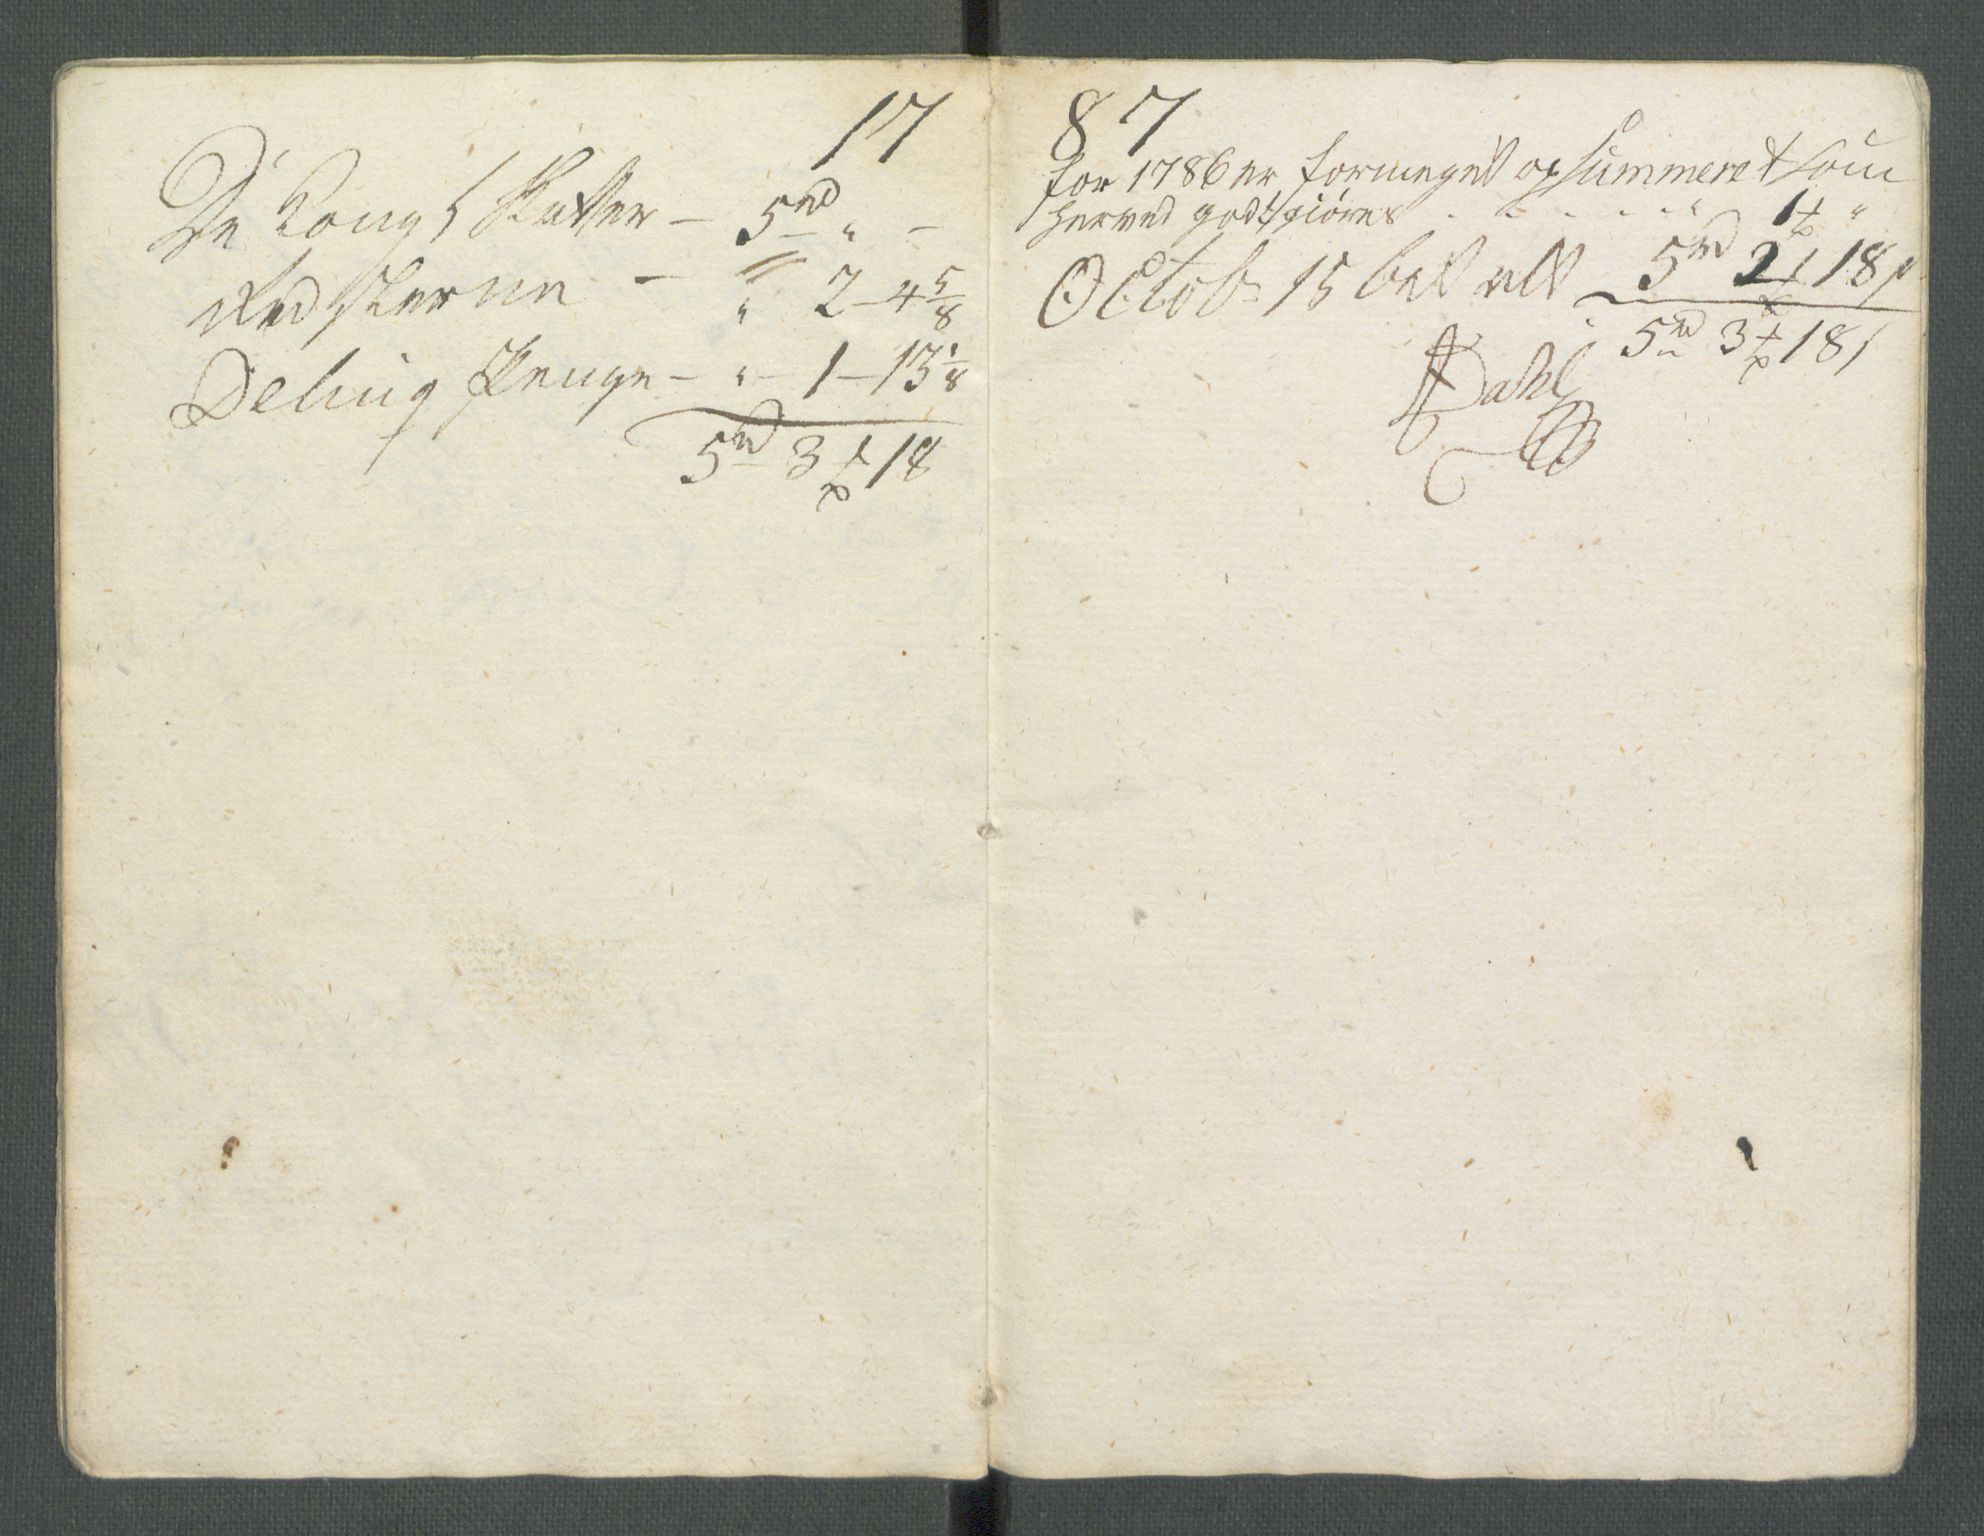 17
De Kong s Skatter – 5 rd " –
Ved skerne – " 2 – 4 5/8
Deling Penge – " – 1 – 13 1/8
5 rd 3 18
87
for 1786 er formeget op summeret som
herved godtgiøres . . . . . " 1 "
Octobr 15 betalt 5 rd 2 18 s
5 rd 3 18 s
Dahl